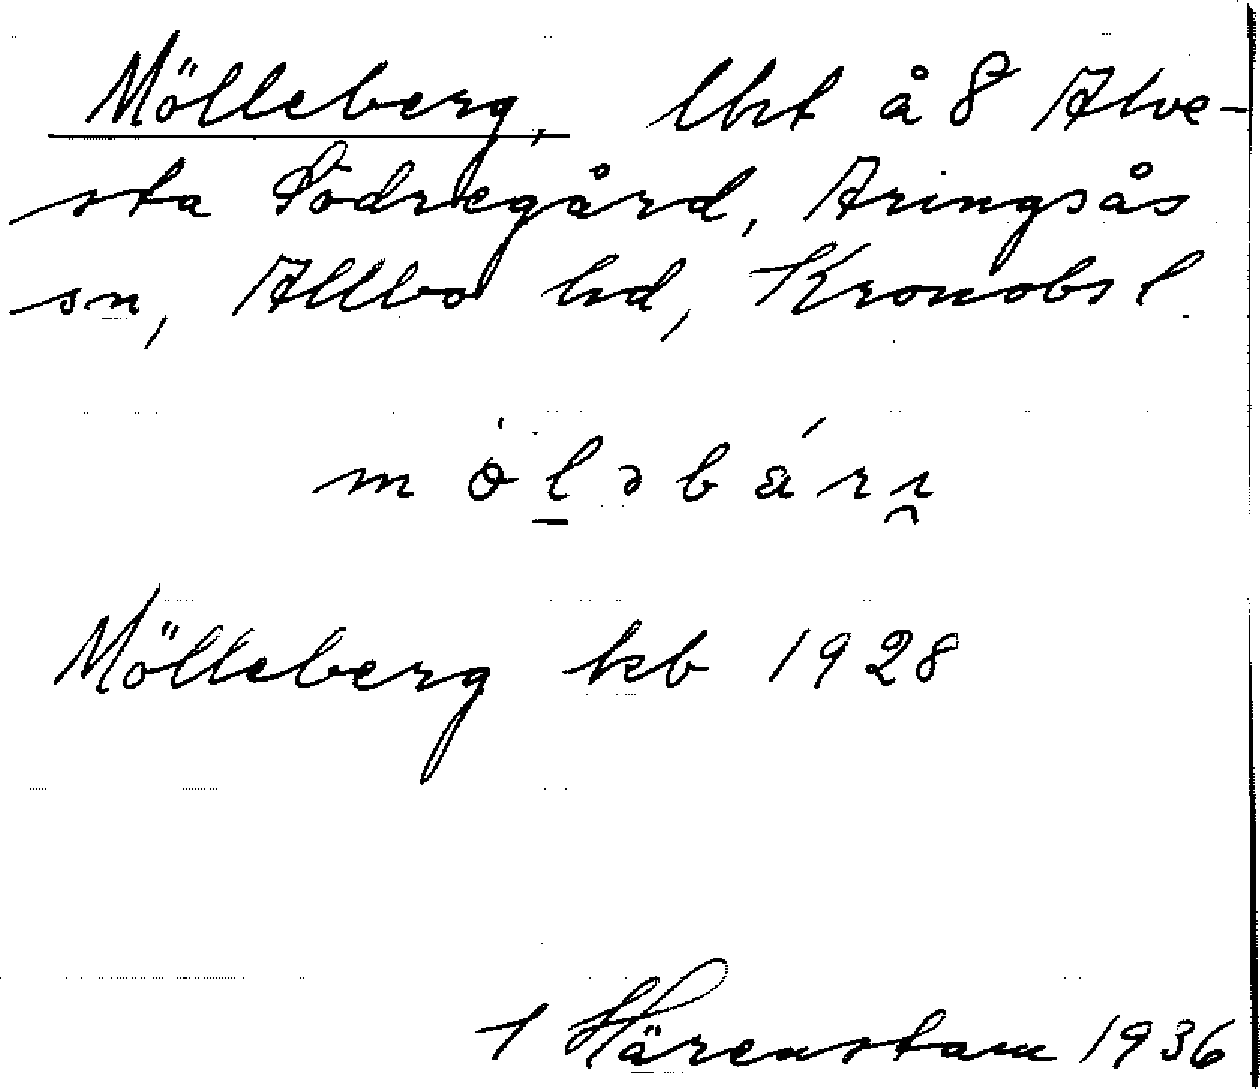 Mölleberg, lht å 8 Alve-
sta Södregård, Aringsås
sn, Allbo hd, Kronobs l.
Mölleberg kb 1928
Härenstam 1936